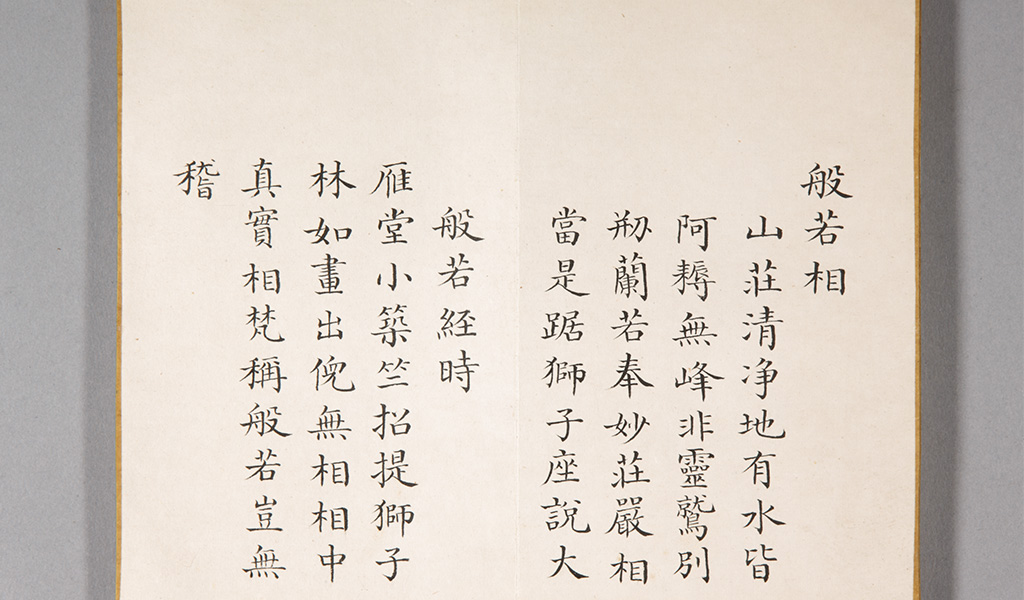 般若相
山莊清净地有水皆
阿耨無峰非靈鷲別
剏蘭若奉妙莊嚴相
當是踞獅子座說大
般若経時
雁堂小築竺招提獅子
林如畫出倪無相相中
真實相梵稱般若豈無
稽